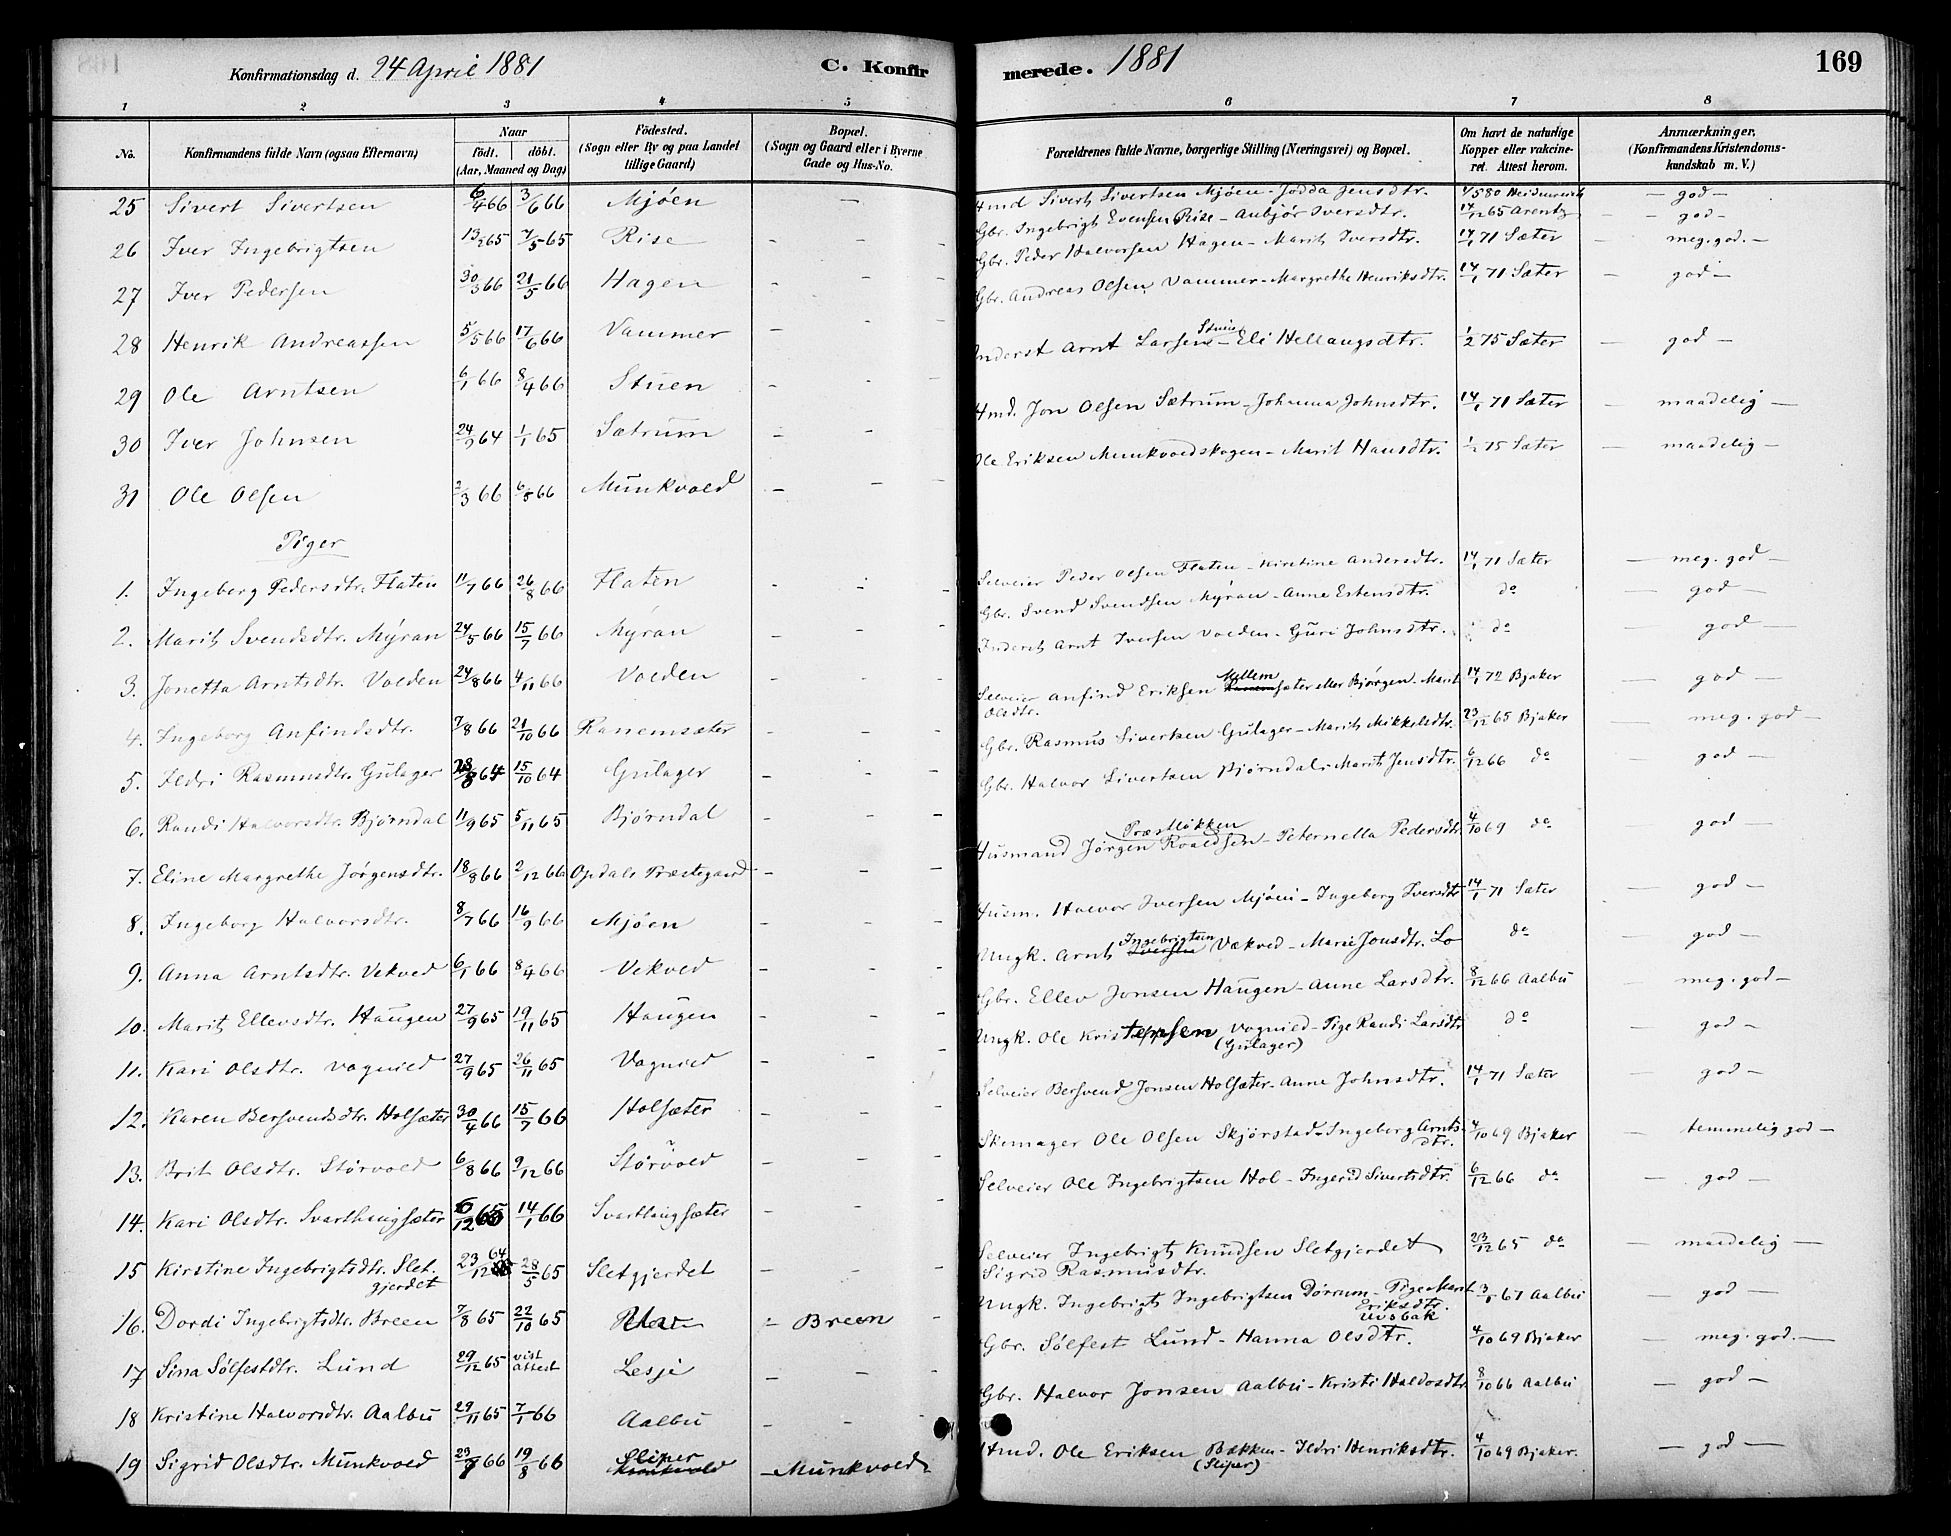 Konfirmationsdag d. 24 April 1881 C. Konfir
1 2 3 4 5
No. Konfirmandens fulde Navn (ogsaa Efternavn) Naar födt. döbt. (Aar, Maaned og Dag) Födested. (Sogn eller By og paa Landet tillige Gaard) Bopæl. (Sogn og Gaard eller i Byerne Gade og Hus-No.
25 Sivert Sivertsen 6/4 66 3/6 66 Mjøen —
26 Iver Ingebrigtsen 13/2 65 7/5 65 Rise - - -
27 Iver Pedersen 30/3 66 21/5 66 Hagen - - -
28 Henrik Andreassen 5/5 66 17/6 66 Vammer - - -
29 Ole Arntsen 6/1 66 8/4 66 Stuen - - -
30 Iver Johnsen 24/9 64 1/1 65 Sætrum - - -
31 Ole Olsen 2/3 66 6/8 66 Munkvold - - -
Piger
1. Ingeborg Pedersdtr. Flaten 11/7 66 26/8 66 Flaten - - -
2. Marit Svendsdtr. Mÿran 24/5 66 15/7 66 Mÿran - - -
3. Jonetta Arntsdtr. Volden 24/8 66 4/11 66 Volden - - -
4. Ingeborg Anfindsdtr. 7/8 66 21/10 66 Ranemsæter - - -
5. Ildri Rasmusdtr. Gulager 28/8 64 15/10 64 Gulager - - -
6. Randi Halvorsdtr. Bjørndal 11/9 65 5/11 65 Bjørndal - - -
7. Eline Margrethe Jörgensdtr. 18/8 66 2/12 66 Opdals Præstegaard - - -
8. Ingeborg Halvorsdtr. 8/7 66 16/9 66 Mjøen - - -
9. Anna Arntsdtr. Vekved 6/1 66 8/4 66 Vekved - - -
10. Marit Ellevsdtr. Haugen 27/9 65 19/11 65 Haugen - - -
11. Kari Olsdtr. Vognild 27/9 65 26/11 65 Vognild - - -
12. Karen Bersvendsdtr. Holsæter 30/4 66 15/7 66 Holsæter - - -
13. Brit Olsdtr. Störvold 6/8 66 9/12 66 Störvold - - -
14. Kari Olsdtr. Svarthaugsæter 6/12 65 14/1 66 Svarthaugsæter - - -
15 Kirstine Ingebrigtsdtr. Slet-
gjerdet 23/12 64 28/5 65 Sletgjerdet - - -
16. Dordi Ingebrigtsdtr. Breen 7/8 65 22/10 65 - Breen -
17 Sina Sølfestdtr. Lund 29/12 65 vist Attest Lesje - - -
18 Kristine Halvorsdtr. Aalbu 29/11 65 7/1 66 Aalbu - - -
19 Sigrid Olsdtr. Munkvold 23/7 66 19/8 66 Sliper Munkvold - Munkvold
merede. 1881 169
6 7 8
Forældrenes fulde Navne, borgerlige Stilling (Næringsvei) og Bopæl. Om havt de naturlige Kopper eller vakcineret. Attest herom. Anmærkninger, (Konfirmandens Kristendomskundskab m. V.)
Hmd Sivert Sivertsen Mjøen - Jødda Jensdtr. - god -
Gbr. Ingebrigt Evensen Rise - Anbjör Iversdtr. 14/12 65 Arentz - - god -
Gbr. Peder Halvorsen Hagen - Marit Iversdtr. 14/1 71 Sæter - meg. god. -
Gbr. Andreas Olsen Vammer - Margrethe Henriksdtr. 14/1 71 Sæter - god -
Inderst Arnt Larsen Stuen - Eli Hellaugsdtr. 1/2 75 Sæter - god -
Hmd. Jon Olsen Sætrum - Johanna Johnsdtr. 14/1 71 Sæter - maadelig -
Ole Eriksen Munkvoldskogen - Marit Hansdtr. 1/2 75 Sæter - maadelig -
Selveier Peder Olsen Flaten - Kirstine Andersdtr. 14/1 71 Sæter - meg. god -
Gbr. Svend Svendsen Mÿran - Anne Estensdtr. do - god -
Inderst Arnt Iversen Volden - Guri Johnsdtr. do - god -
Selveier Anfind Eriksen Mellem Ranemsæter - Marit 14/1 72 Bjaker - god -
Olsdtr.
Gbr. Rasmus Sivertsen Gulager - Marit Mikkelsdtr. 23/12 65 Bjaker - meg. god -
Gbr. Halvor Sivertsen Bjørndal - Marit Jensdtr. 6/12 66 do - god -
Præstløkken
Husmand Jørgen Roaldsen - Peternella Pedersdtr. 4/10 69 do - god -
Husm. Halvor Iversen Mjöen - Ingeborg Iversdtr. 14/1 71 Sæter - god -
Ungk. Arnt Ingebrigtsen Iversen Vækved - Marie Jonsdtr. Lo do - god -
Gbr. Ellev Jonsen Haugen - Anne Larsdtr. 8/12 66 Aalbu - meg. god -
Ungk. Ole Kristensen Vognild - Pige Randi Larsdtr do - god -
(Gulager)
Selveier Bersvend Jonsen Holsæter - Anne Johnsdtr. 14/1 71 Sæter - god -
Skomager Ole Olsen Skjörstad - Ingeborg Arntsdtr. 4/10 69 Bjaker - temmelig god -
Selveier Ole Ingebrigtsen Hol - Ingerid Sivertsdtr. 6/12 66 do - god -
Selveier Ingebrigt Knudsen Sletgjerdet 23/12 65 do - maadelig -
Sigrid Rasmusdtr.
Ungk. Ingebrigt Ingebrigtsen Dørrum - Pige Marit 3/1 67 Aalbu - god -
Eriksdtr.
Uvsbak
Gbr. Sølfest Lund - Hanna Olsdtr. 4/10 69 Bjaker - meg. god. -
Gbr. Halvor Jonsen Aalbu - Kristi Haldosdtr. 8/10 66 Aalbu - god -
Hmd. Ole Eriksen Bækken - Ildri Henriksdtr. 4/10 69 Bjaker. - god -
(Sliper)